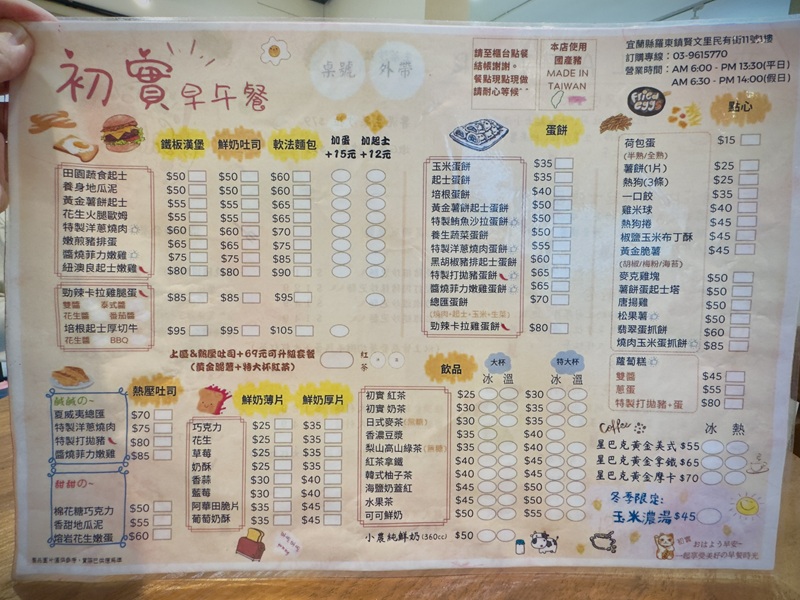 初實早午餐
桌號 外帶
請至櫃台點餐
結帳謝謝。
餐點現點現做
請耐心等候^^
本店使用
國產豬
MADE IN
TAIWAN
宜蘭縣羅東鎮賢文里民有街11號1樓
訂購專線：03-9615770
營業時間：AM 6:00 - PM 13:30(平日)
AM 6:30 - PM 14:00(假日)
鐵板漢堡 鮮奶吐司 軟法麵包 加蛋+15元 加起士+12元
田園蔬食起士 $50 $50 $60
養身地瓜泥 $50 $50 $60
黃金薯餅起士 $55 $55 $65
花生火腿歐姆 $55 $55 $65
特製洋蔥燒肉 $60 $60 $70
嫩煎豬排蛋 $65 $65 $75
醬燒菲力嫩雞 $75 $75 $85
紐澳良起士嫩雞 $80 $80 $90
勁辣卡拉雞腿蛋 $85 $85 $95
雙醬 泰式醬
花生醬 番茄醬
培根起士厚切牛 $95 $95 $105
花生醬 BBQ
上區&熱壓吐司+69元可升級套餐
(黃金脆薯+特大杯紅茶)
紅茶 冰 溫
蛋餅
玉米蛋餅 $35
起士蛋餅 $35
培根蛋餅 $40
黃金薯餅起士蛋餅 $50
特製鮪魚沙拉蛋餅 $50
養生蔬菜蛋餅 $50
特製洋蔥燒肉蛋餅 $55
黑胡椒豬排起士蛋餅 $60
特製打拋豬蛋餅 $65
醬燒菲力嫩雞蛋餅 $65
總匯蛋餅 $70
(燒肉+起士+玉米+生菜)
勁辣卡拉雞蛋餅 $80
Fried eggs
點心
荷包蛋 $15
(半熟/全熟)
薯餅(1片) $25
熱狗(3條) $25
一口餃 $35
雞米球 $40
熱狗捲 $45
椒鹽玉米布丁酥 $45
黃金脆薯 $45
(胡椒/梅粉/海苔)
麥克雞塊 $50
薯餅蛋起士塔 $50
唐揚雞 $50
松果薯 $50
翡翠蛋抓餅 $60
燒肉玉米蛋抓餅 $85
蘿蔔糕
雙醬 $45
蔥蛋 $55
特製打拋豬+蛋 $80
熱壓吐司
鹹鹹の~
夏威夷總匯 $70
特製洋蔥燒肉 $75
特製打拋豬 $80
醬燒菲力嫩雞 $85
甜甜の~
棉花糖巧克力 $50
香甜地瓜泥 $55
熔岩花生嫩蛋 $60
鮮奶薄片 鮮奶厚片
巧克力 $25 $35
花生 $25 $35
草莓 $25 $35
奶酥 $25 $35
香蒜 $30 $40
藍莓 $30 $40
阿華田脆片 $35 $45
葡萄奶酥 $35 $45
飲品 大杯 特大杯
冰 溫 冰 溫
初實 紅茶 $25 $30
初實 奶茶 $30 $35
日式麥茶(無糖) $30 $35
香濃豆漿 $35 $40
梨山高山綠茶(無糖) $35 $45
紅茶拿鐵 $40 $45
韓式柚子茶 $40 $50
海鹽奶蓋紅 $45 $50
水果茶 $45 $55
可可鮮奶 $50 $55
小農純鮮奶(360cc) $50
Coffee 冰 熱
星巴克黃金美式 $55
星巴克黃金拿鐵 $65
星巴克黃金摩卡 $70
冬季限定:
玉米濃湯 $45
初實 おはよう早安~
一起享受美好の早餐時光